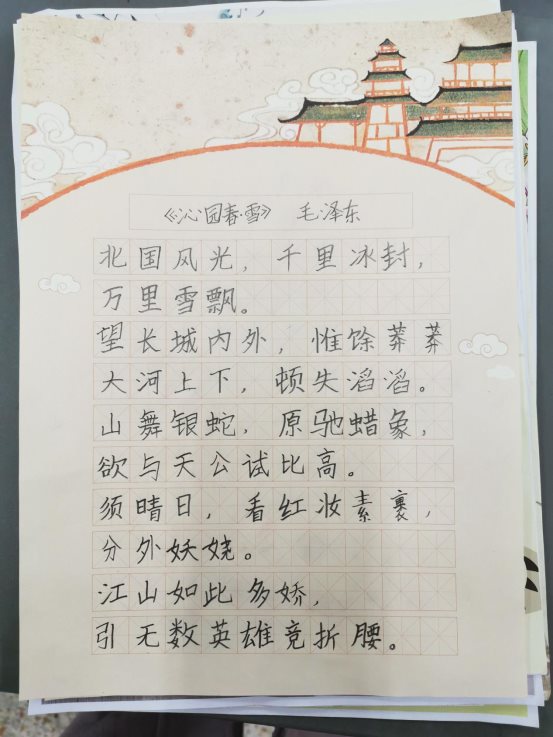 《沁园春·雪》 毛泽东
北国风光，千里冰封，
万里雪飘。
望长城内外，惟馀莽莽
大河上下，顿失滔滔。
山舞银蛇，原驰蜡象，
欲与天公试比高。
须晴日，看红妆素裹，
分外妖娆。
江山如此多娇，
引无数英雄竞折腰。